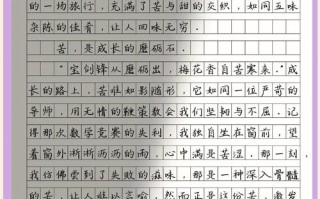 的一场旅行，充满了苦与甜的交织，如同五味
杂陈的佳肴，让人回味无穷。
苦，是成长的磨砺石。
“宝剑锋从磨砺出，梅花香自苦寒来。”成
长的路上，苦难如影随形，它如同一位严苛的
导师，用无情的鞭策教会我们坚韧与不屈。记
得那次数学竞赛的失利，我独自坐在窗前，望
着窗外淅淅沥沥的雨，心中满是苦涩，那一刻，
我仿佛尝到了失败的滋味，那是一种深入骨髓
的苦，让人难以言喻。然而正是这份苦，激发